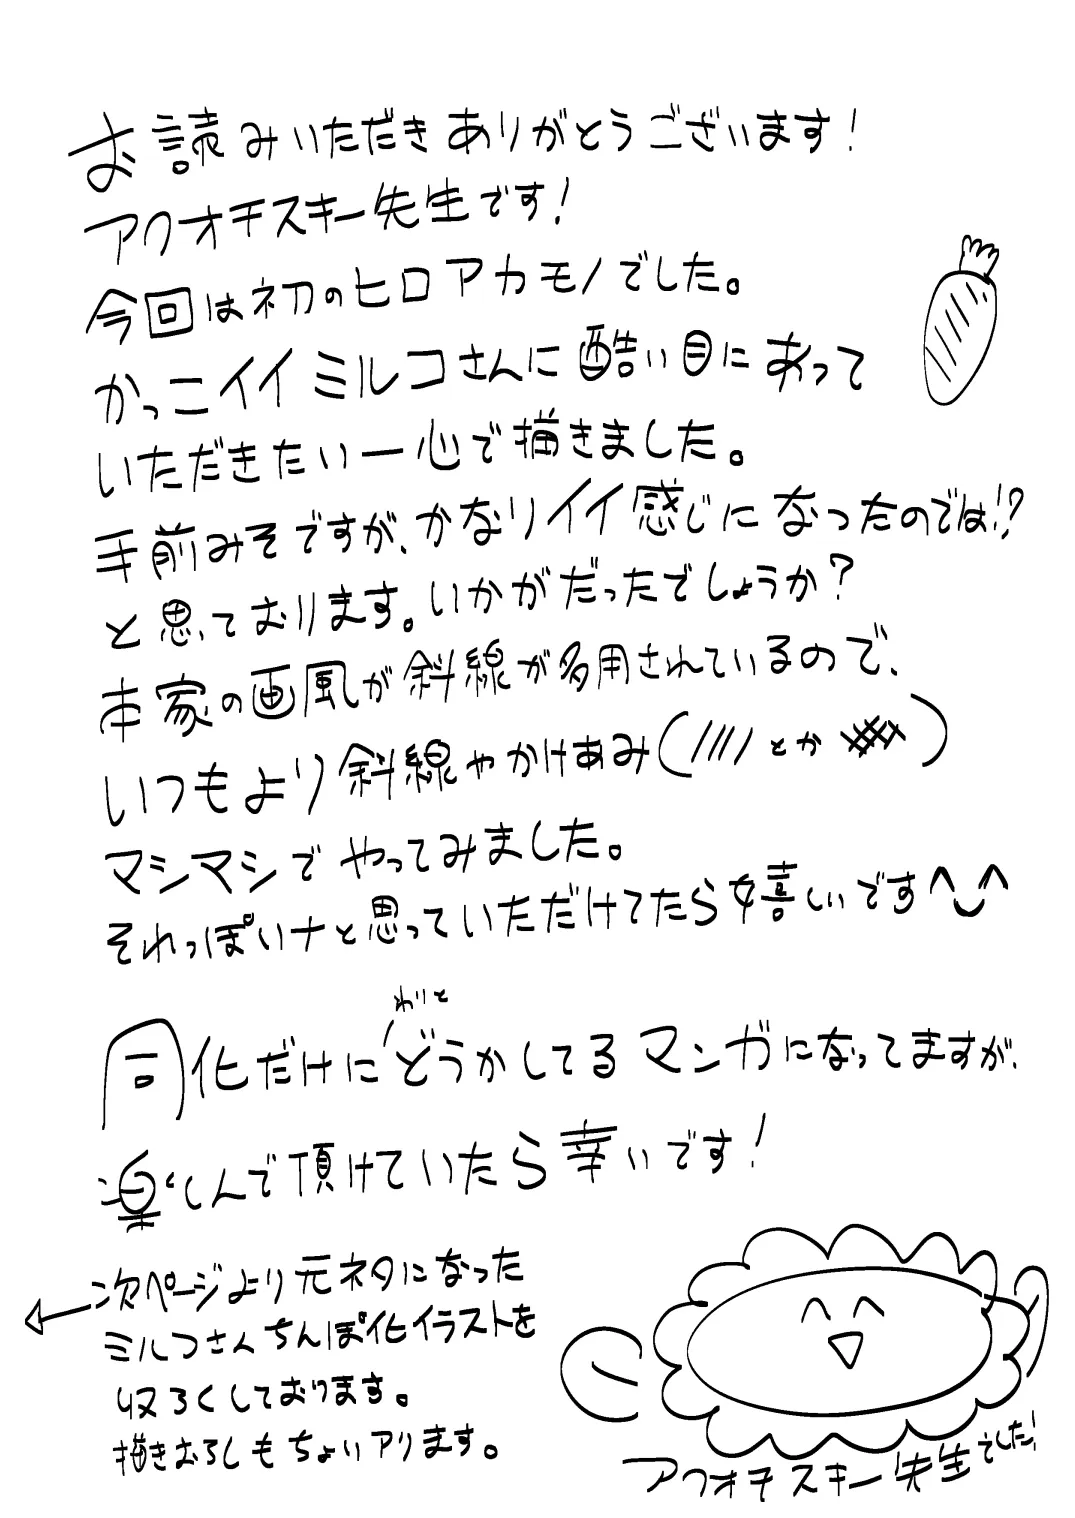 お読みいただきありがとうございます!
アクオチスキー先生です!
今回は初のヒロアカモノでした。
かっこイイミルコさんに酷い目にあって
いただきたい一心で描きました。
手前みそですが、かなりイイ感じになったのでは!?
と思っております。いかがだったでしょうか?
本家の画風が斜線が多用されているので、
いつもより斜線やかけあみ(////とか )
マシマシでやってみました。
それっぽいナと思っていただけてたら嬉しいです^^
わりと
同化だけにどうかしてるマンガになってますが、
楽しんで頂けていたら幸いです!
次ページより元ネタになった
ミルコさんちんぽ化イラストを
収ろくしております。
描きおろしもちょいアリます。
アクオチスキー先生でした!